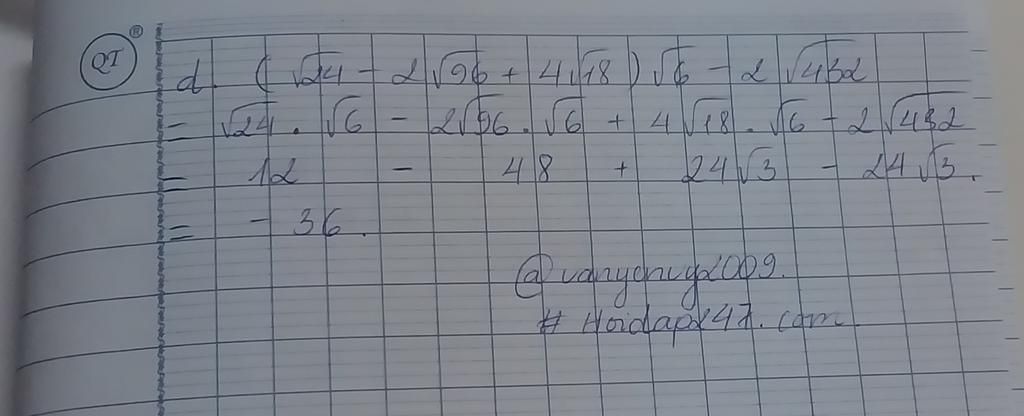 QT ®
d. ( √24 - 2√96 + 4√18 ) √6 - 2 √432
= √24 . √6 - 2√96 . √6 + 4√18 . √6 - 2√432
= 12 - 48 + 24√3 - 24√3.
= - 36.
# Hoidap247.com